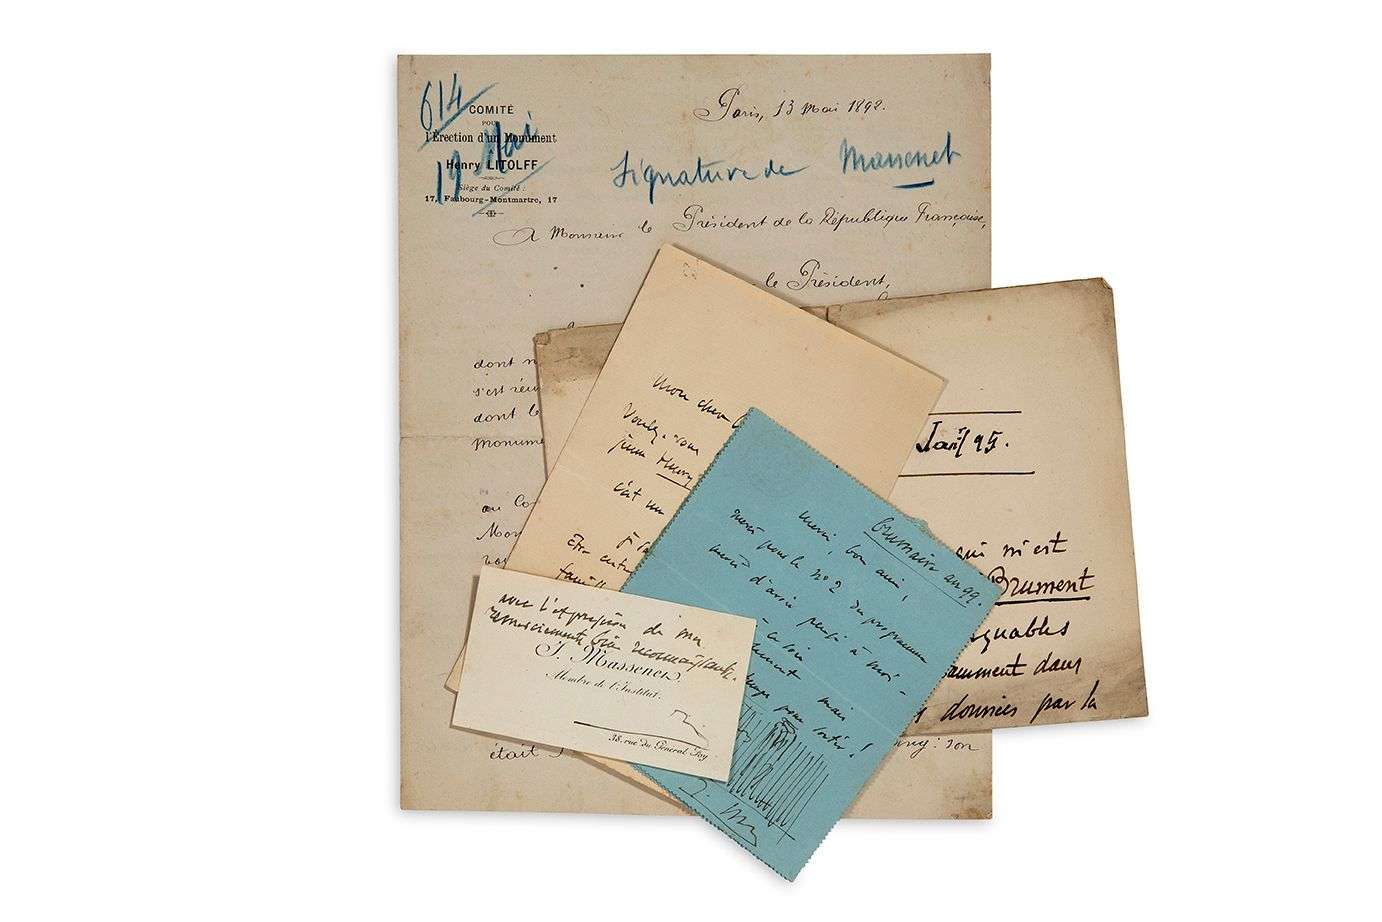 614
COMITÉ
POUR
l'Érection d'un Monument
Henry LITOLFF
19 Mai
Siège du Comité :
17, Faubourg-Montmartre, 17
Paris, 13 Mai 1892.
Signature de Massenet
A Monsieur le Président de la République Française,
le Président,
dont n
s'est réu
dont le
monume
au Co
Mon
était
son
Mon cher
Voulez-vous
jeune Henry
c'est un
Être entr
famill
95.
qui m'est
Brument
quables
amment dans
données par la
brumaire an 99.
merci, bon ami,
merci pour le nº 2 du programme
merci d'avoir pensé à moi -
mais
pour sortir !
avec l'expression de mes
remerciements bien reconnaissants.
J. Massenet.
Membre de l'Institut.
38, rue du Général Foy